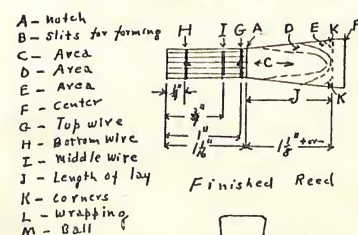 A - notch
B - Slits for forming
C - Area
D - Area
E - Area
F - Center
G - Top wire
H - Bottom wire
I - Middle wire
J - Length of lay
K - corners
L - Wrapping
M - Ball
H I G A D E K F
C
J
K
1/4"
3/4"
1"
1 1/16"
1 1/8" + or -
Finished Reed